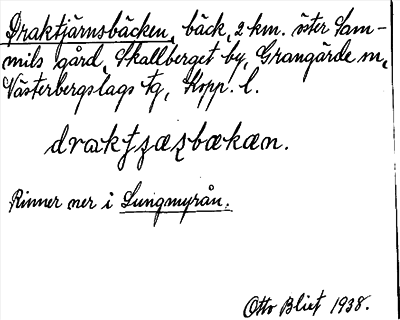 Draktjärnsbäcken, bäck, 2 km. öster Sam-
mils gård, Skallberget by, Grangärde sn,
Västerbergslags tg, Kopp. l.
Rinner ner i Lungmyrån.
Otto Blixt 1938.